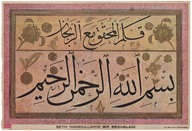 قلم المحقق مع الريحان
بسم الله الرحمن الرحيم
ŞEYH HAMDULLAH'IN BİR BESMELESİ